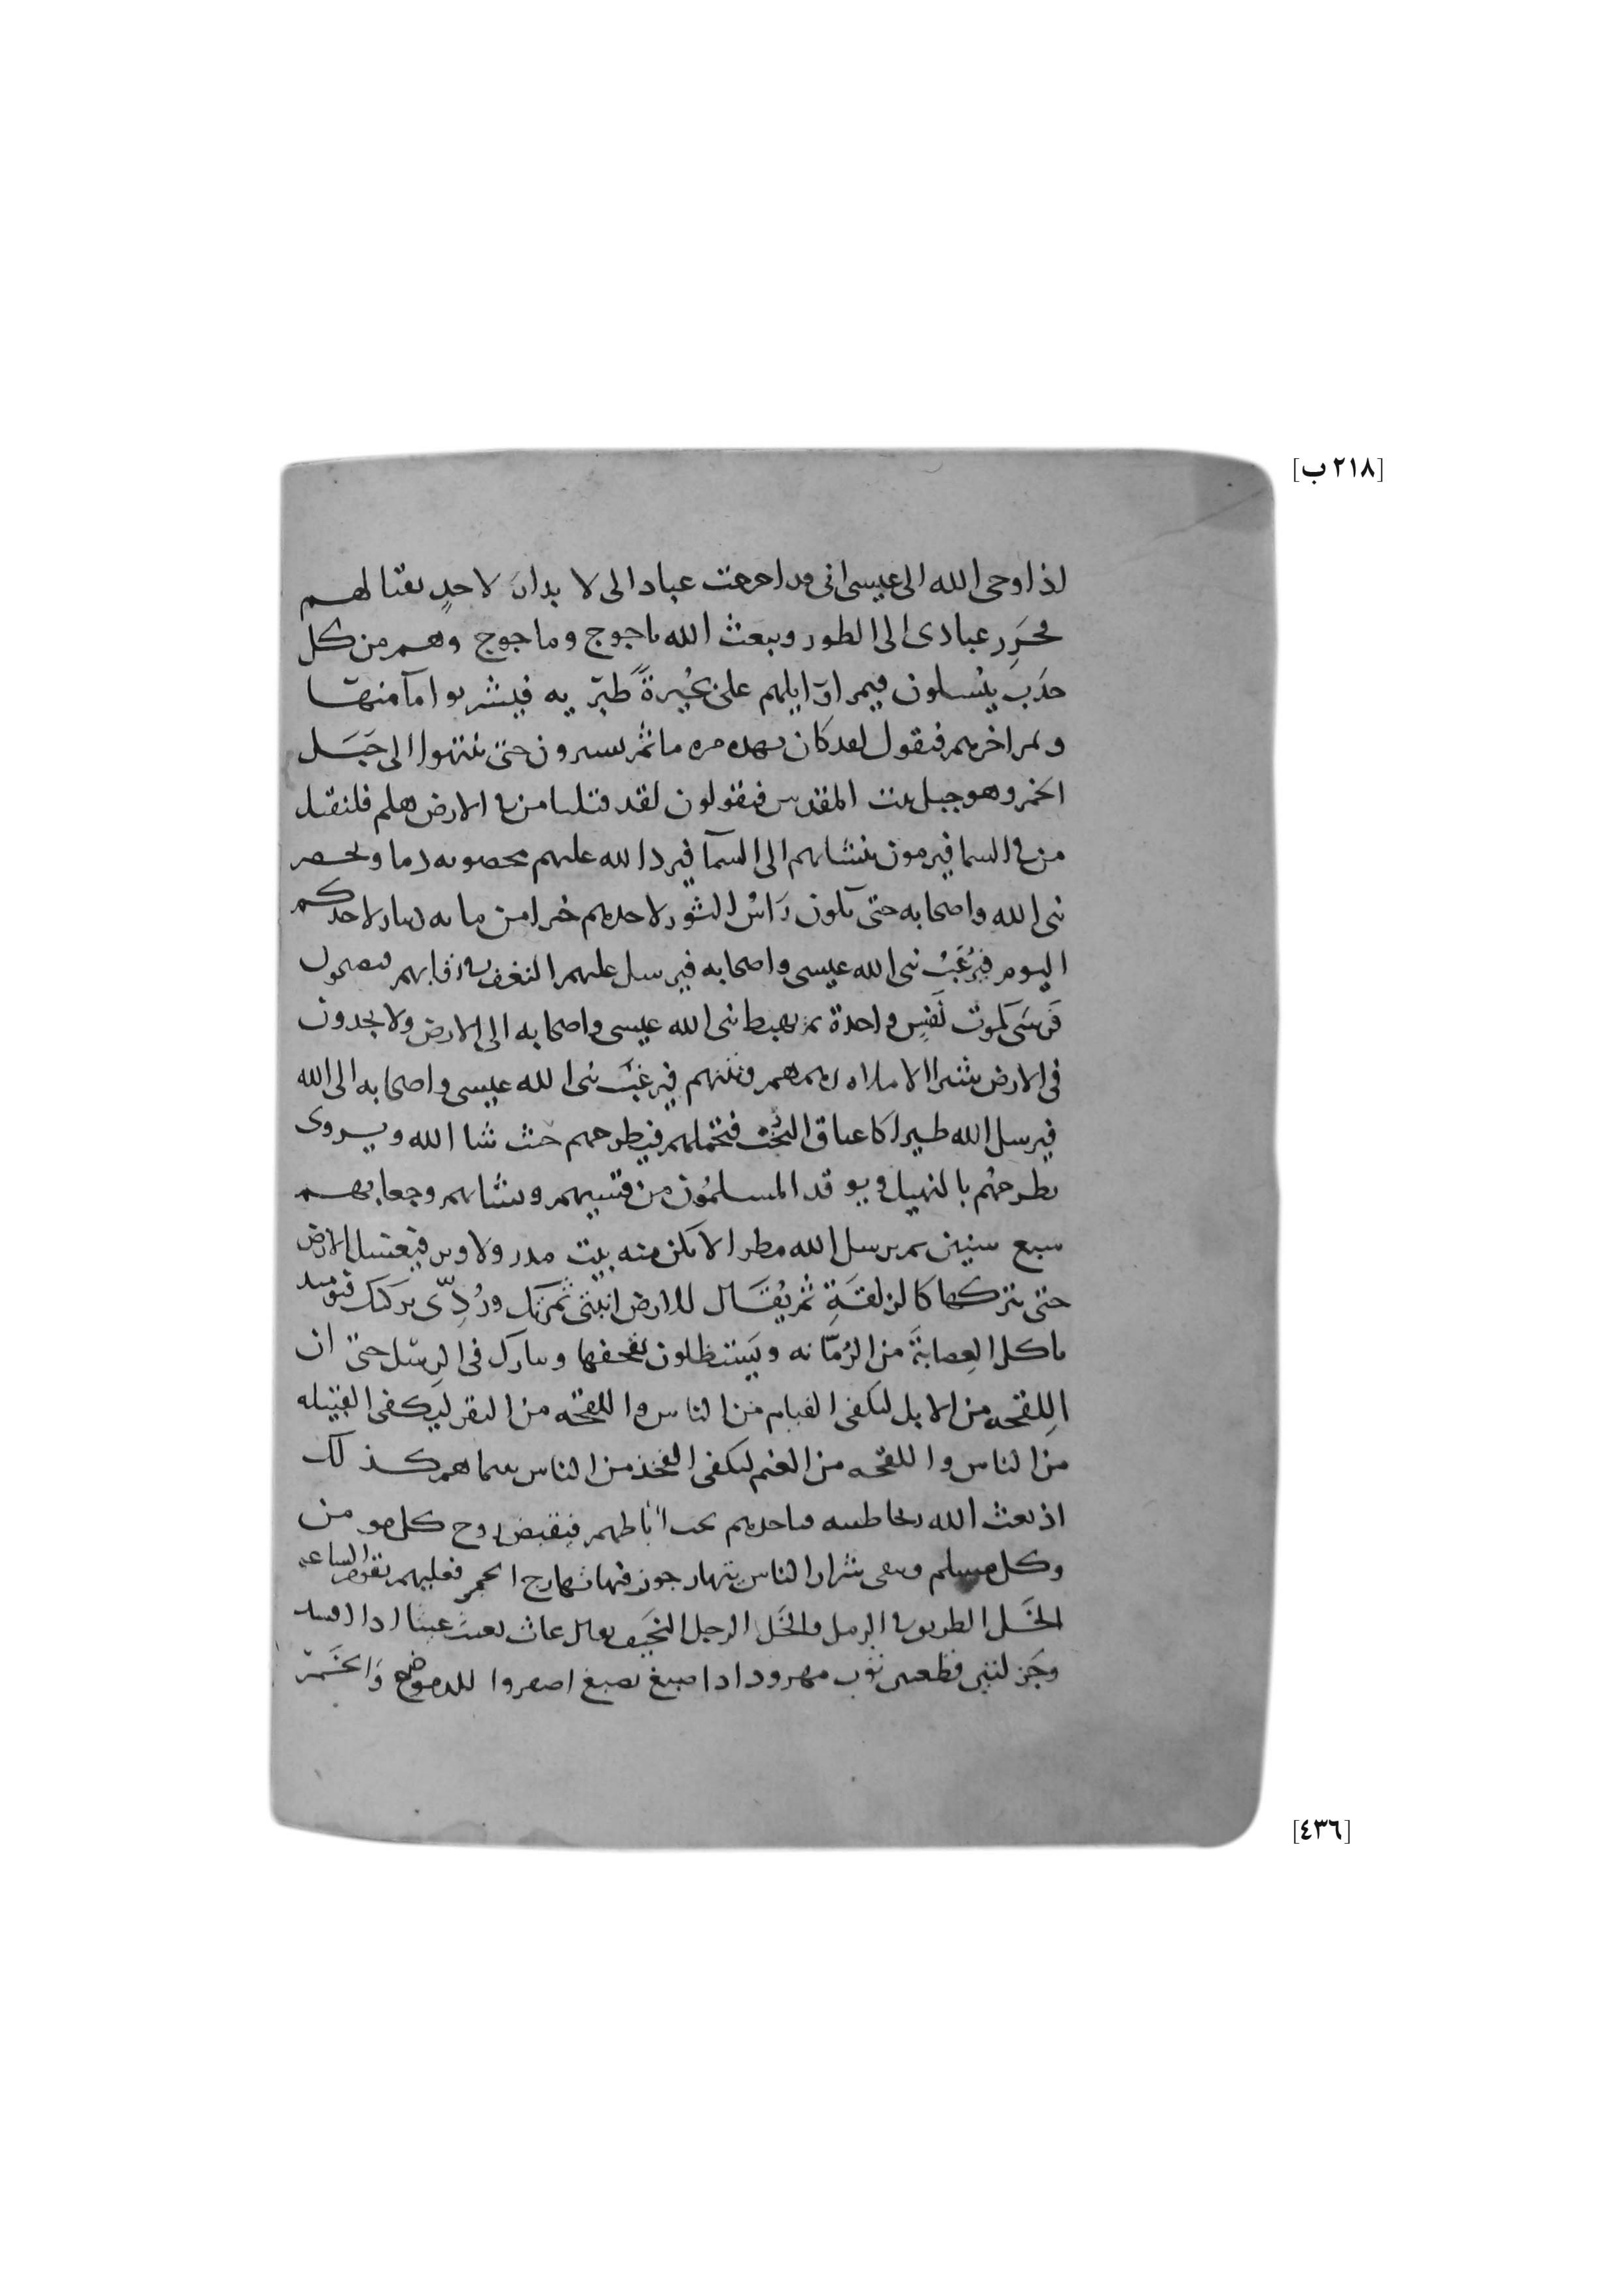 [٢١٨ ب]
اذ اوحى الله الى عيسى انى قد اخرجت عبادا لى لا يدان لاحدٍ بقتالهم
فحَرِر عبادى الى الطور ويبعث الله ياجوج وماجوج وهم من كل
حدَب ينسلون فيمر اوايلهم على بحُيرةً طبَريه فيشربوا مآ منها
ويمر اخرهم فيقول لقد كان بهده مره ما ثم يسيرون حتى ينتهوا الى جَبَل
الخمر وهو جبل بيت المقدس فيقولون لقد قتلنا من فى الارض هلم فلنقتل
من فى السما فيرمون بنشابهم الى السمآ فيرد الله عليهم مخصوبه دما ويحصر
نبى الله واصحابه حتى يكون رَاسُ الثور لاحدهم خيرا من مايه دينار لاحدكم
اليوم فيرُغَبُ نبى الله عيسى واصحابه فيرسل عليهم النغف فى رقابهم فيصبحون
فَرسَى كموت نَفسٍ واحدة ثم يهبط نبى الله عيسى واصحابه الى الارض ولا يجدون
فى الارض شبرا الا ملاه زهمهم ونتنهم فيرغَبُ نبى الله عيسى واصحابه الى الله
فيرسل الله طيرا كاعناق البُخت فتحملهم فيطرحهم حيث شا الله ويروى
تطرحهُم بالنهبل ويوقد المسلمُون من قسيهم ونشابهم وجعابهم
سبع سنين ثم يرسل الله مطرا لا يكن منه بيت مدر ولا وبر فيغسل الارض
حتى يتركها كالزلقَةِ ثم يُقَال للارض انبتى ثمرتك ورُدِّى بركتك فيوميذ
ياكل العِصابَة من الرُمّانه ويَستظلون بقحفها ويبارك فى الرِسل حتى ان
اللِقحه من الابل لتكفى الفيام من الناس واللقحه من البقر ليكفى القبيله
من الناس واللقحه من الغنم لتكفى الفخذ من الناس بينما هم كذلك
اذ بعث الله ريحا طيبه فياخدهم تحت اباطهم فيقبض روح كل مومن
وكل مسلم ويبقى شرار الناس يتهارجون فيها تهارج الحمر فعليهم تقوم الساعه
الخَل الطريق فى الرمل والخَل الرجل النحيف يقال عاث يعيث عيثا ادا افسد
وجَزلتين قطعتين ثوب مهرود ادا صبغ بصبغ اصفر والدموضح وَالخَمَر
[٤٣٦]